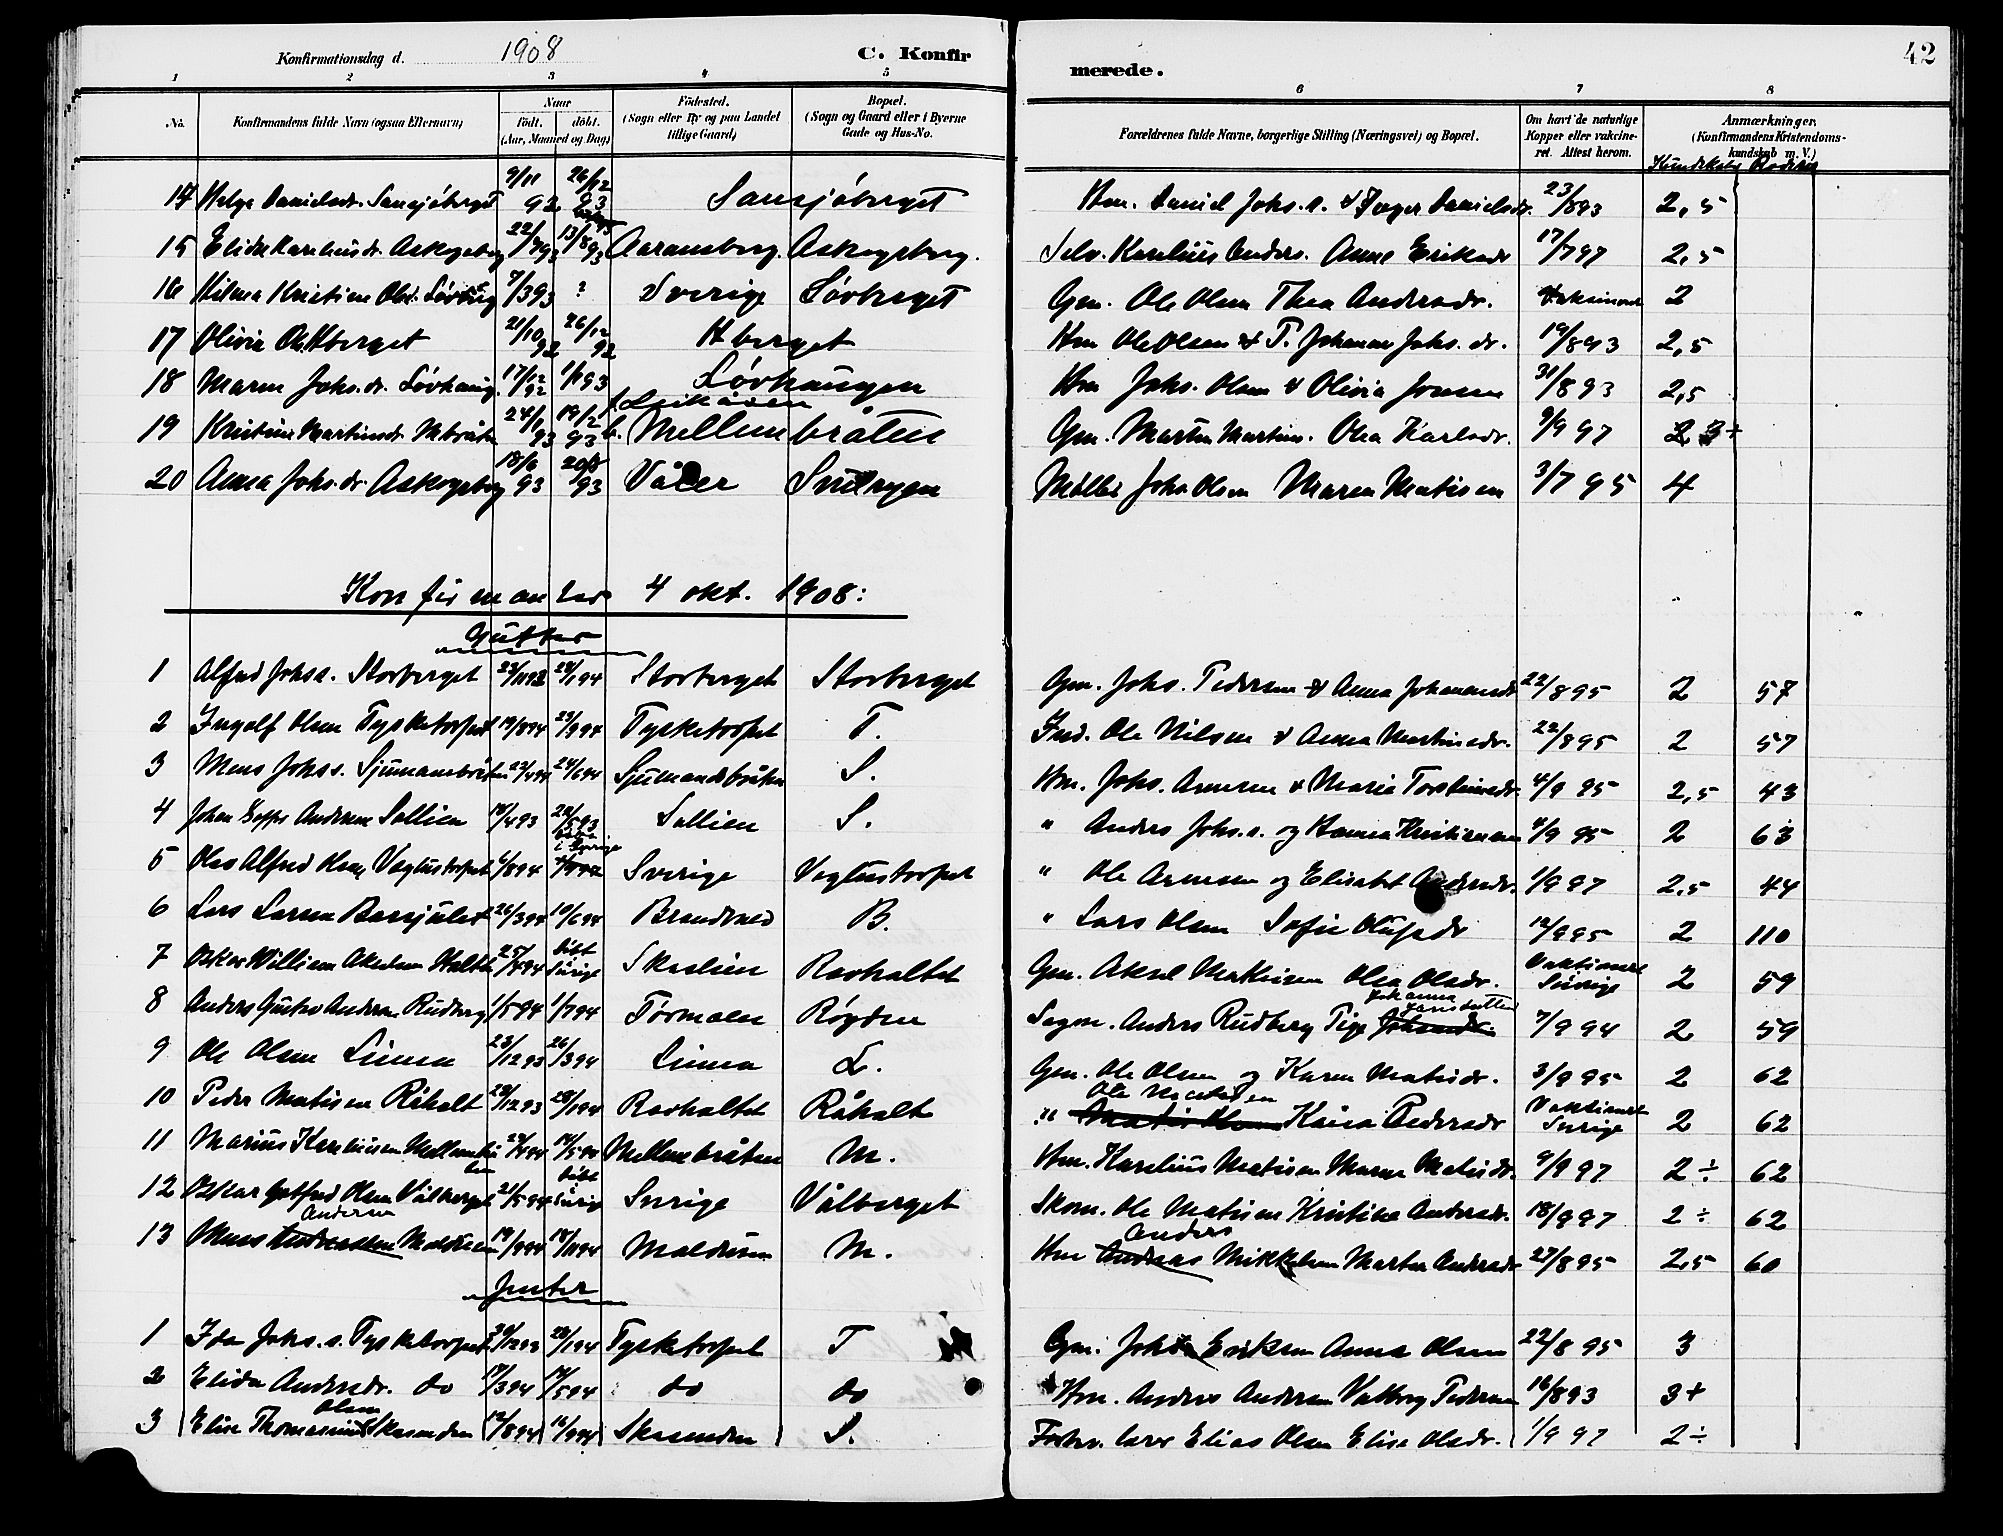 Konfirmationsdag d. 1908 C. Konfir merede. 42
1 2 3 4 5 6 7 8
No. Konfirmandens fulde Navn (ogsaa Efternavn) Naar født. døbt. (Aar, Maaned og Dag) Fødested. (Sogn eller By og paa Landet tillige Gaard) Bopæl. (Sogn og Gaard eller i Byerne Gade og Hus-No. Forældrenes fulde Navne, borgerlige Stilling (Næringsvei) og Bopæl. Om havt de naturlige Kopper eller vakcineret. Attest herom. Anmærkninger. (Konfirmandens Kristendomskundskab m. V.)
Kundskab
17 Helga Danielsdr. Sansjöberget 9/11 92 26/12 93 Sansjöberget Hm. Daniel Johs.s. & Inger Danielsdr. 23/893 2,5
15 Elida Kareliusdr. Askogsberg 22/793 13/893 Aaramsberg. Askogsberg. Selv. Karelius Anders. Anne Eriksdr 17/797 2,5
16 Hilma Kristine Olsd. Lövhaug 7/393 ? Sverige Lövberget Gm. Ole Olsen Thea Andersdr. 2
17 Olivia Ols. Hberget 21/10 92 26/12 92 Hberget Hm Ole Olsen & P. Johanne Johs. dr. 19/893 2,5
18 Maren Johs. dr. Lövhaug. 17/12 92 1/193 Lövhaugen Hm Johs. Olsen & Olivia Jonsen 31/893 2,5
19 Kristine Martinsdr. Mbråten 24/1 93 19/2 93 Mellembråten Gm. Martin Martins. Olea Karlsdr. 9/997
20 Anna Johs. dr. Askogsberg 18/6 93 20/8 93 Våler Møller Johs Olsen Maren Matisen 3/795 4
Konfirmander 4 okt. 1908:
Gutter
1 Alfred Johs s. Storberget 23/1193 28/194 Storberget Storberget Gm. Johs. Pedersen & Anna Johansdr 22/895 2 57
2 Ingolf Olsen Tysketorpet 19/894 23/994 Tysketorpet T. Ind. Ole Nilsen & Anna Martinsdr. 22/895 2 57
3 Mons Johs s. Sjumansbråten 22/494 24/694 Sjumandsbråten S. Hm. Johs. Arnesen & Maria Torstensdr. 4/995 2,5 43
4 Johan Andersen Sollien 18/493 28/593 Sollien S. " Anders Johs.s. og Hanna Kristiansen 4/995 2 63
5 Olav Alfred Olsen Vaglustorpet 6/894 i Sverige Sverige Vaglustorpet " Ole Arnesen og Elisabet Andersdr. 1/997 2,5 44
6 Lars Larsen 26/394 10/694 Brandvold B. " Lars Olsen Sofie Olufsdr 12/995 2 110
7 Oskar William Akselsen 25/494 döbt Sverige Skaslien Ravholtet Gm. Aksel Mathisen Olea Olsdr. Vaktioneret Sverige 2 59
8 Anders Gustav Andersen Rudberg 1/594 1/794 Törmoen Røgden Sagm. Anders Rudberg Johanna Jansdatter 7/994 2 59
9 Ole Olsen Linna 23/1293 26/394 Linna L. Gm. Ole Olsen og Karen Matisdr. 3/995 2 62
10 Peder Matisen Råholt 29/1293 28/194 Ravholtet Råholt " Ole Matisen Kaisa Pedersdr Vaktioneret Sverige 2 62
11 Marius Kareliusen Mellembråten 29/494 14/594 Mellembråten M. Hm. Karelius Matisen Maren Matisdr. 9/997 2÷ 62
12 Oskar Gotfred Olsen Vålberget 21/594 döbt Sverige Sverige Vålberget Skom. Ole Matisen Kristine Andersdr. 18/997 2÷ 62
13 Mons Andersen Moldusen 19/994 18/1194 Moldusen M. Hm Anders Mikkelsen Marta Andersdr 27/895 2,5 60
Jenter
1 Ida Johs. s. Tysketorpet 30/1293 28/194 Tysketorpet T Gm. Johan Eriksen Anna Olsen 22/895 3
2 Elida Andersdr. do 17/394 14/594 do do Hm. Anders Andersen Valborg Pedersen 16/893 3+
3 Elise Thomasine Olsen Skasenden 12/894 16/994 Skasenden S. Elias Olsen Elise Olsdr. 1/997 2÷